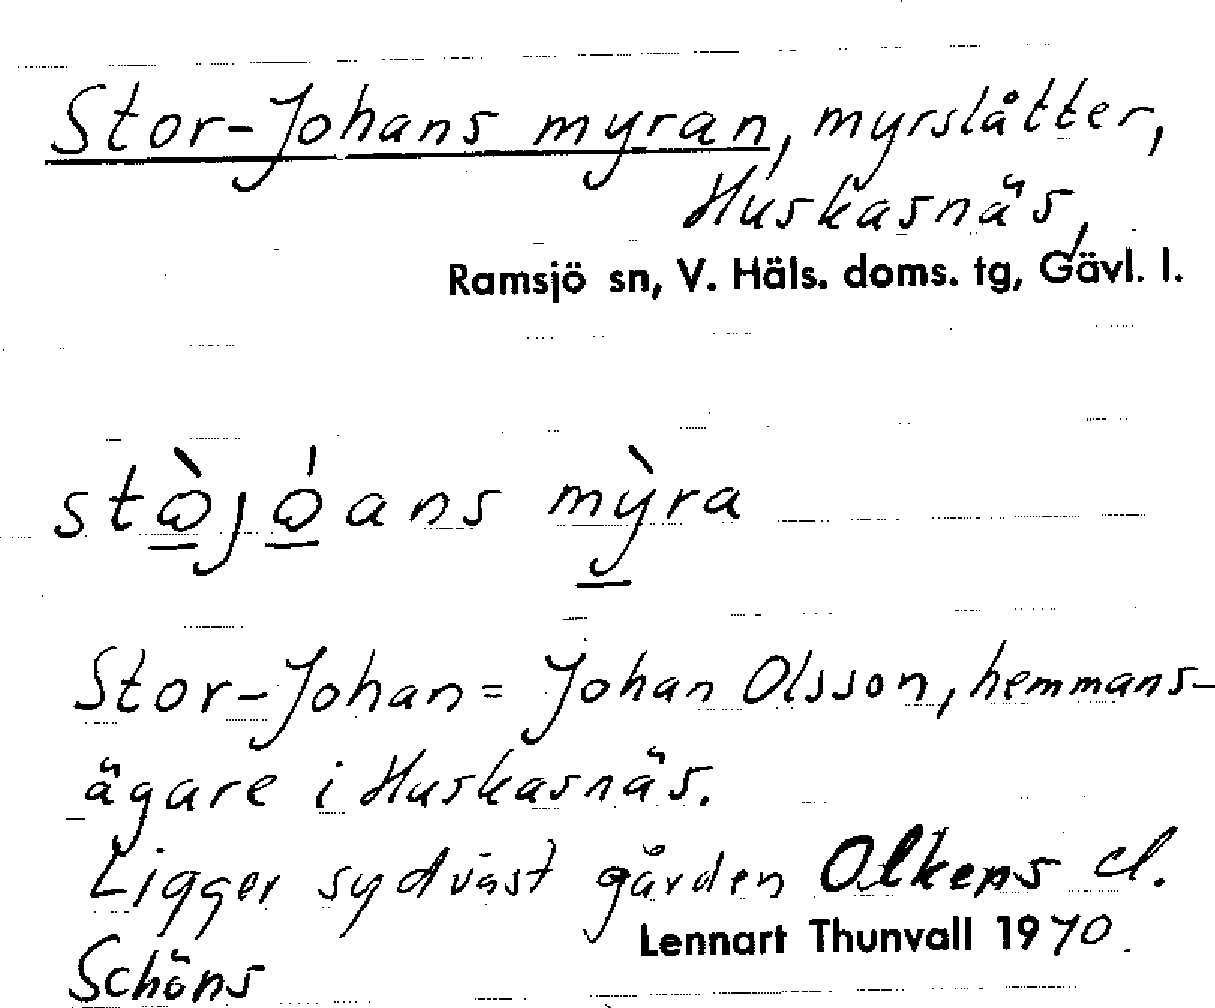 Stor-Johans myran, myrslåtter,
Huskasnäs,
Ramsjö sn, V. Häls. doms. tg, Gävl. l.
stὼjώans mỳra
Stor-Johan = Johan Olsson, hemmans-
ägare i Huskasnäs.
Ligger sydväst gården Olkens el.
Schöns
Lennart Thunvall 1970.